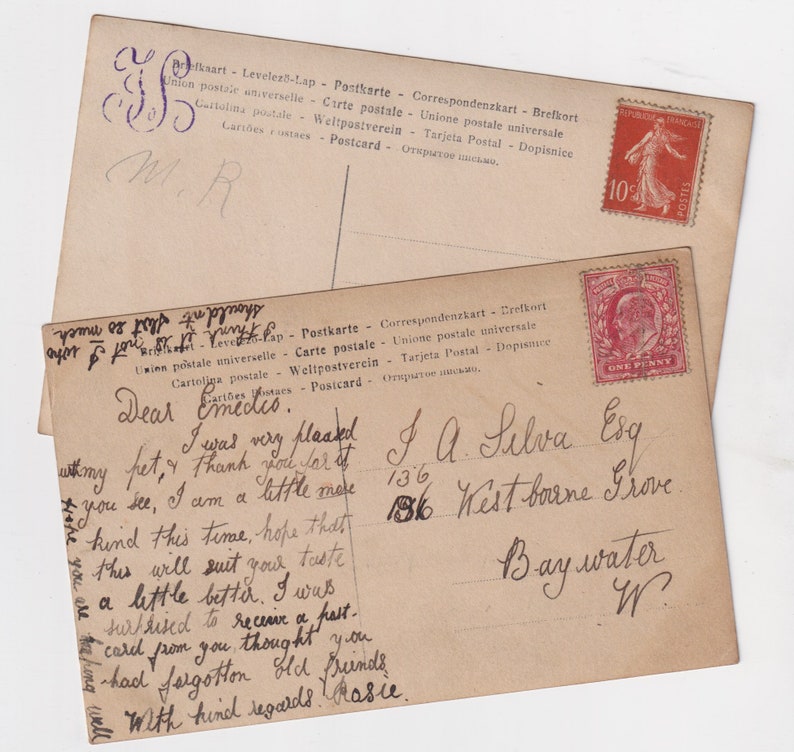 JS
Brefkaart - Levelező-Lap - Postkarte - Correspondenzkart - Brefkort
Union postale universelle - Carte postale - Unione postale universale
Cartolina postale - Weltpostverein - Tarjeta Postal - Dopisnice
Cartões Postaes - Postcard - Открытое письмо.
M. R
REPUBLIQUE FRANÇAISE
10c
POSTES
I think it is not I who
should not
so much.
Brefkaart - Levelező-Lap - Postkarte - Correspondenzkart - Brefkort
Union postale universelle - Carte postale - Unione postale universale
Cartolina postale - Weltpostverein - Tarjeta Postal - Dopisnice
Cartões Postaes - Postcard - Открытое письмо.
ONE PENNY
Dear Emedio.
I was very pleased
with my pet, & thank you for it
you see, I am a little more
kind this time, hope that
this will suit your taste
a little better. I was
surprised to receive a post-
card from you, thought you
had forgotton old friends
With kind regards. Rosie.
hope you are keeping well
J A. Silva Esq
136
136 Westbourne Grove.
Baywater
W.